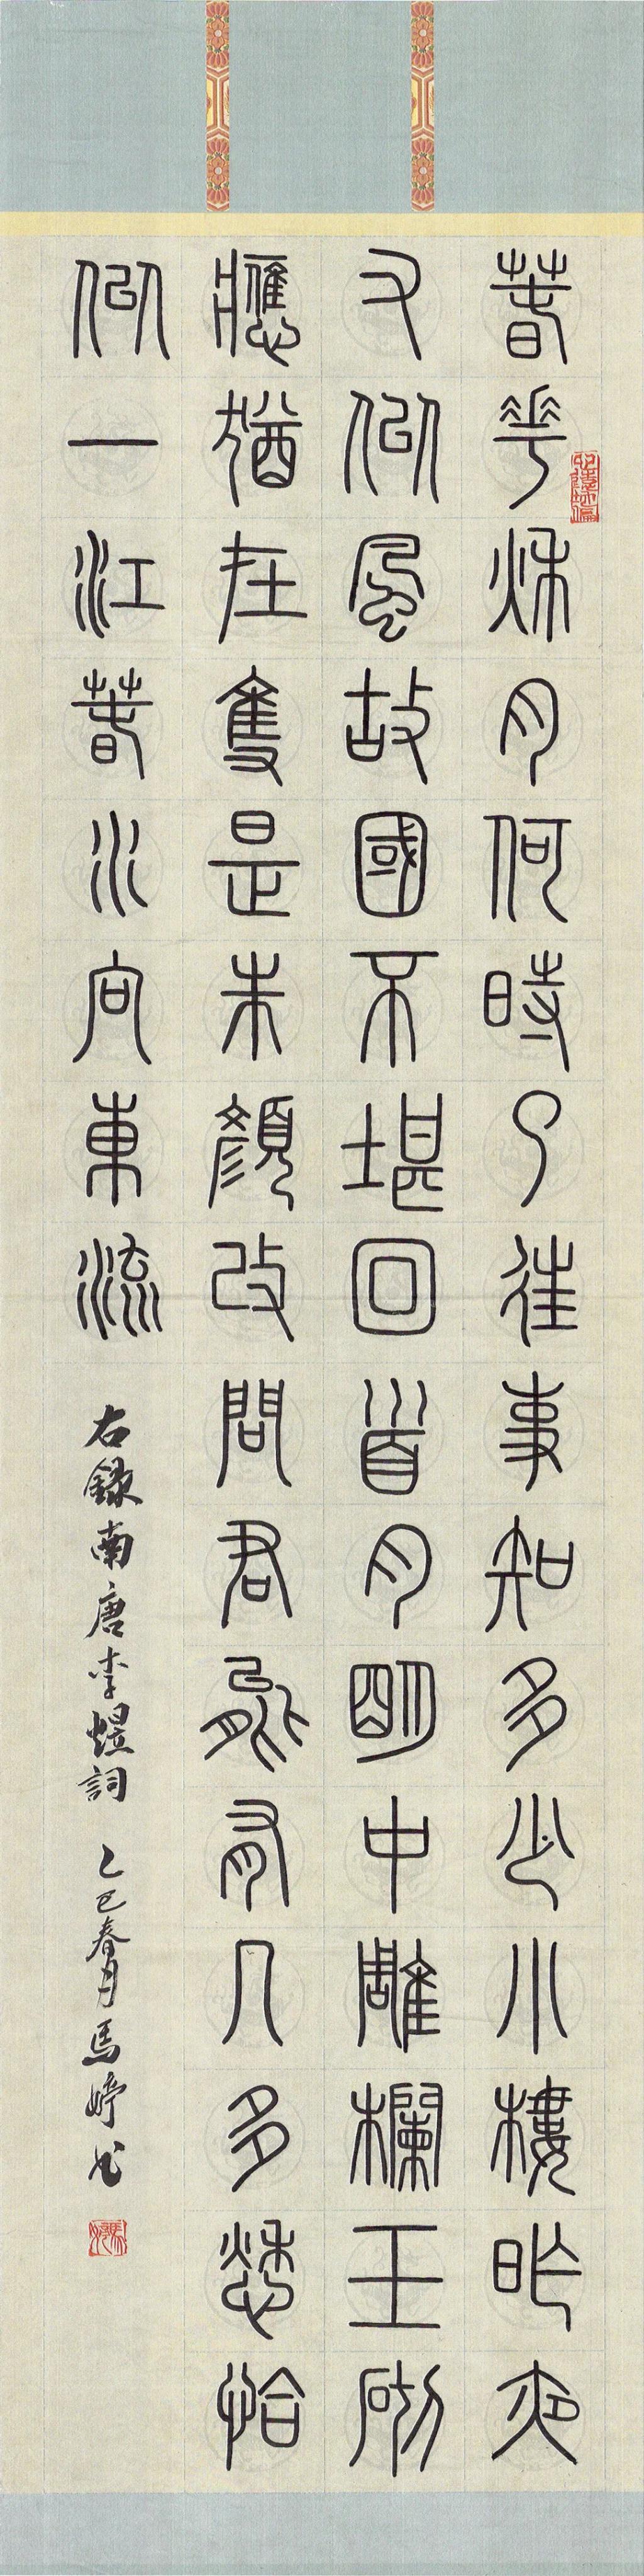 春花秋月何時了往事知多少小樓昨夜
又似風故國不堪回首月明中雕欄玉砌
應猶在隻是朱顏改問君能有几多愁恰
似一江春水向東流
右錄南唐李煜詞 乙巳春月馬婷書